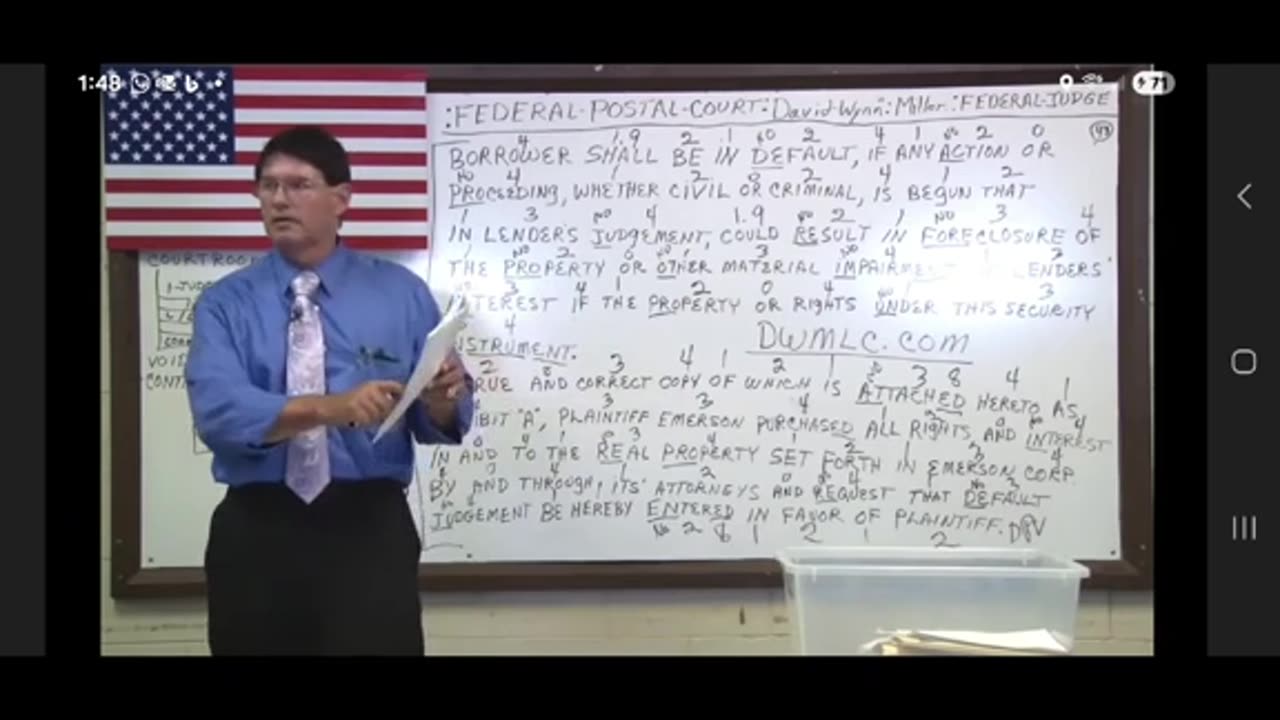 1:48
71
:FEDERAL-POSTAL-COURT: David-Wynn: Miller: FEDERAL-JUDGE
4 1.9 2 1 NO 2 4 1 NO 2 0
BORROWER SHALL BE IN DEFAULT, IF ANY ACTION OR
NO 4 1 2 0 2 4 1 2
PROCEEDING, WHETHER CIVIL OR CRIMINAL, IS BEGUN THAT
1 3 NO 4 1.9 NO 2 1 NO 3 4
IN LENDER'S JUDGEMENT, COULD RESULT IN FORECLOSURE OF
1 NO 2 0 NO 3 NO 4
THE PROPERTY OR OTHER MATERIAL IMPAIRMENT LENDERS'
3 4 1 2 0 4 3
INTEREST IF THE PROPERTY OR RIGHTS UNDER THIS SECURITY
4
STRUMENT.
DWMLC.COM
2 8 3 4 1 2 1 NO 3 8 4 1
RUE AND CORRECT COPY OF WHICH IS ATTACHED HERETO AS
3 3 4 1
IBIT "A", PLAINTIFF EMERSON PURCHASED ALL RIGHTS, AND INTEREST
IN AND TO THE REAL PROPERTY SET FORTH IN EMERSON CORP
BY AND THROUGH, ITS' ATTORNEYS AND REQUEST THAT DEFAULT
JUDGEMENT BE HEREBY ENTERED IN FAVOR OF PLAINTIFF.
NO 2 8 1 2 1 2
COURTROO
VOID
CONT